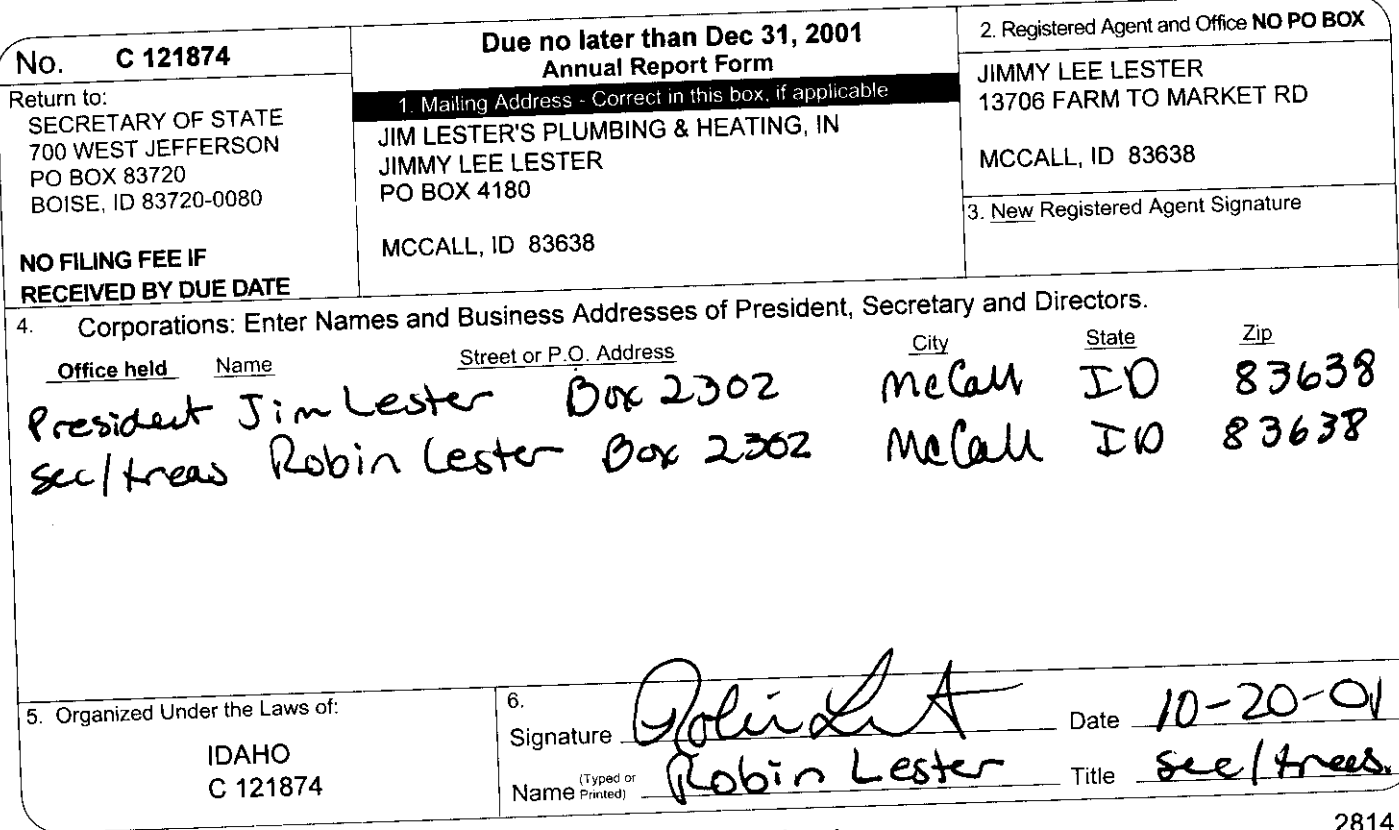 No. C 121874
Return to:
SECRETARY OF STATE
700 WEST JEFFERSON
PO BOX 83720
BOISE, ID 83720-0080
NO FILING FEE IF
RECEIVED BY DUE DATE
Due no later than Dec 31, 2001
Annual Report Form
1. Mailing Address - Correct in this box, if applicable
JIM LESTER'S PLUMBING & HEATING, IN
JIMMY LEE LESTER
PO BOX 4180
MCCALL, ID 83638
2. Registered Agent and Office NO PO BOX
JIMMY LEE LESTER
13706 FARM TO MARKET RD
MCCALL, ID 83638
3. New Registered Agent Signature
4. Corporations: Enter Names and Business Addresses of President, Secretary and Directors.
Office held Name Street or P.O. Address City State Zip
President Jim Lester Box 2302 McCall ID 83638
sec/treas Robin Lester Box 2302 McCall ID 83638
5. Organized Under the Laws of:
IDAHO
C 121874
6.
Signature Robin Lest Date 10-20-01
Name (Typed or Printed) Robin Lester Title sec/treas.
2814